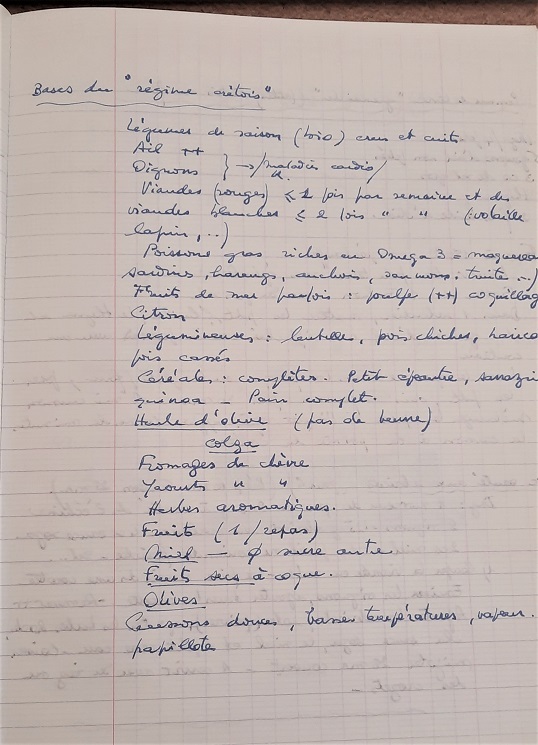 Bases du "régime crétois"
Légumes de saison (bio) crus et cuits
Ail ++
Oignons } → / maladies cardio /
K.
Viandes (rouges) ≤ 1 fois par semaine et des
viandes blanches ≤ 2 fois " " (volaille
lapin, ...)
Poissons gras riches en Omega 3 = maquereau
sardines, harengs, anchois, saumons, truite ...)
Fruits de mer parfois : poulpe (++) coquillag
Citron
Légumineuses : lentille, pois chiches, harico
pois cassés
Céréales : complètes. Petit épeautre, sarrazin
quinoa - Pain complet.
Huile d'olive (pas de beurre)
colza
Fromages de chèvre
Yaourts " "
Herbes aromatiques.
Fruits (1/repas)
Miel - ∅ sucre autre
Fruits secs à coque.
Olives
Cuissons douces, basses températures, vapeur.
papillote